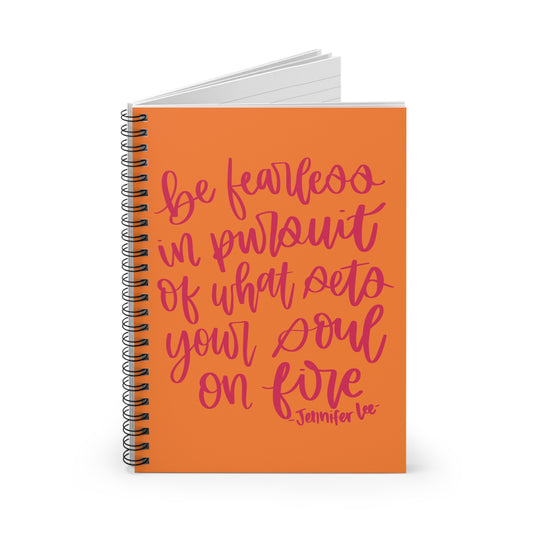 be fearless
in pursuit
of what sets
your soul
on fire
-Jennifer Lee-